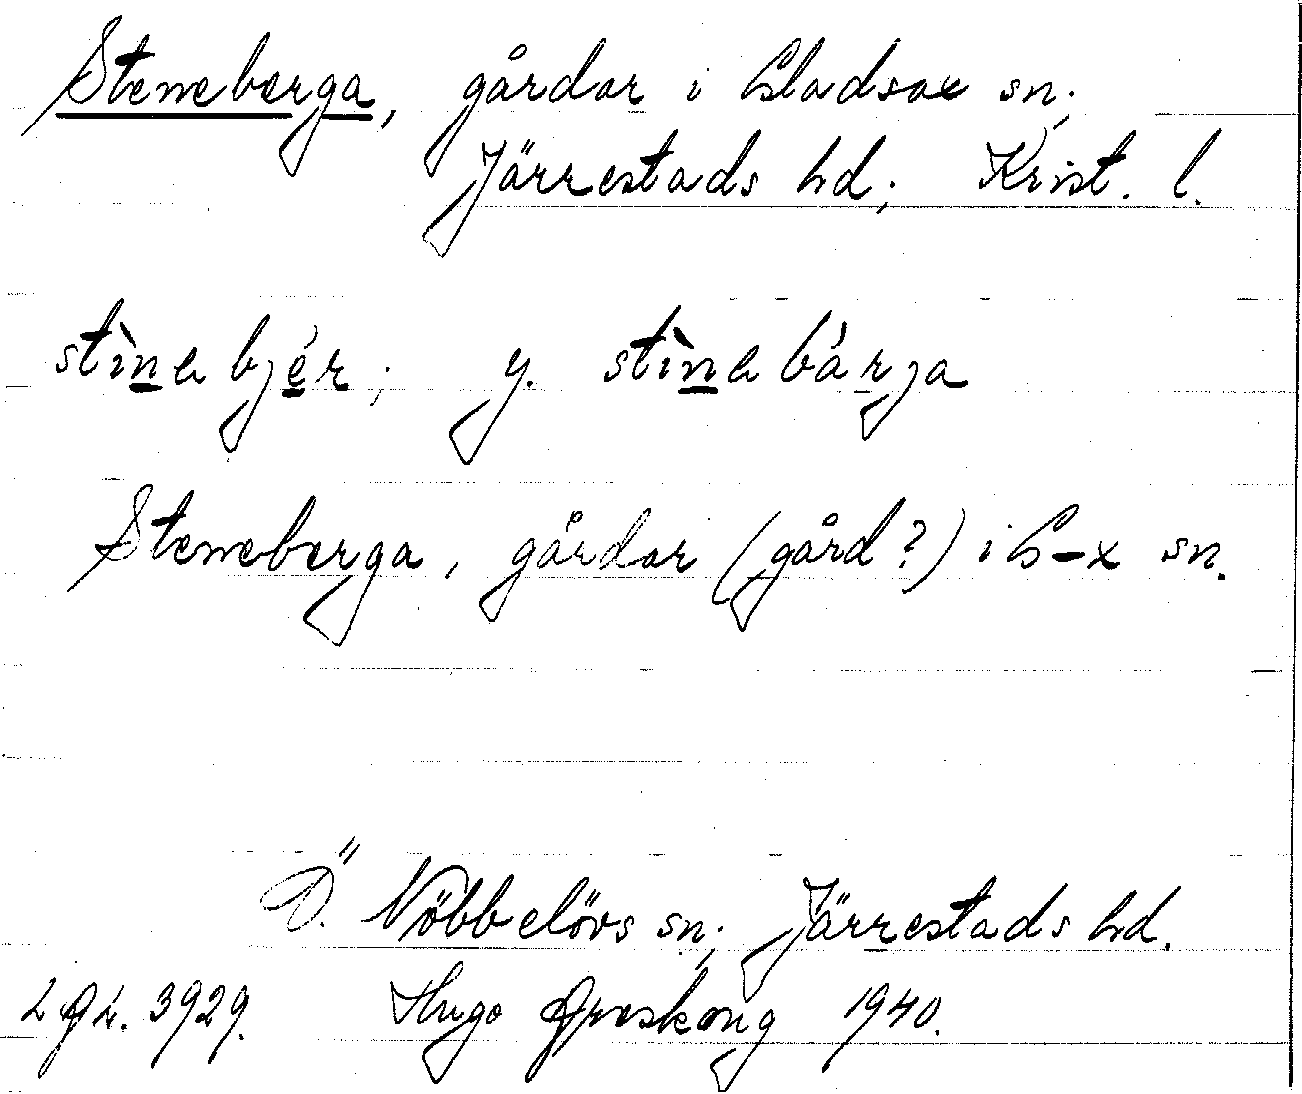 Steneberga, gårdar i Gladsax sn;
Järrestads hd; Krist. l.
stìnabjér; y. stìnabárja
Steneberga, gårdar (gård?) i G-x sn.
Ö. Nöbbelövs sn; Järrestads hd.
3929. Hugo 1940.